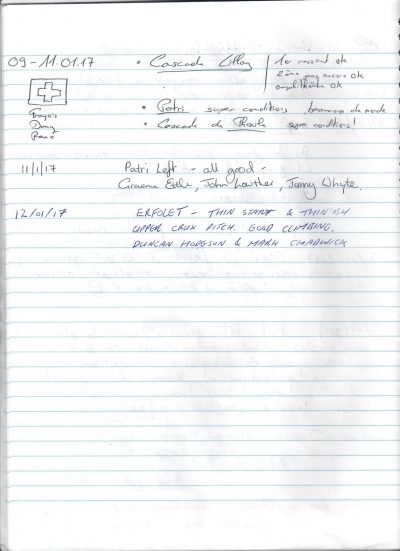 09-11.01.17 • Cascade Lillaz 1er ressaut ok
2ème pas encore ok
amphithéâtre ok
• Patri super conditions beaucoup de monde
• Cascade de super conditions!
Dany
René
11/1/17 Patri Left - all good -
Graeme Ettle, John Lowther, Jonny Whyte.
12/01/17 ERFOLET - THIN START & THIN ISH
UPPER CRUX PITCH. GOOD CLIMBING.
DUNCAN HODGSON & MARK CHADWICK